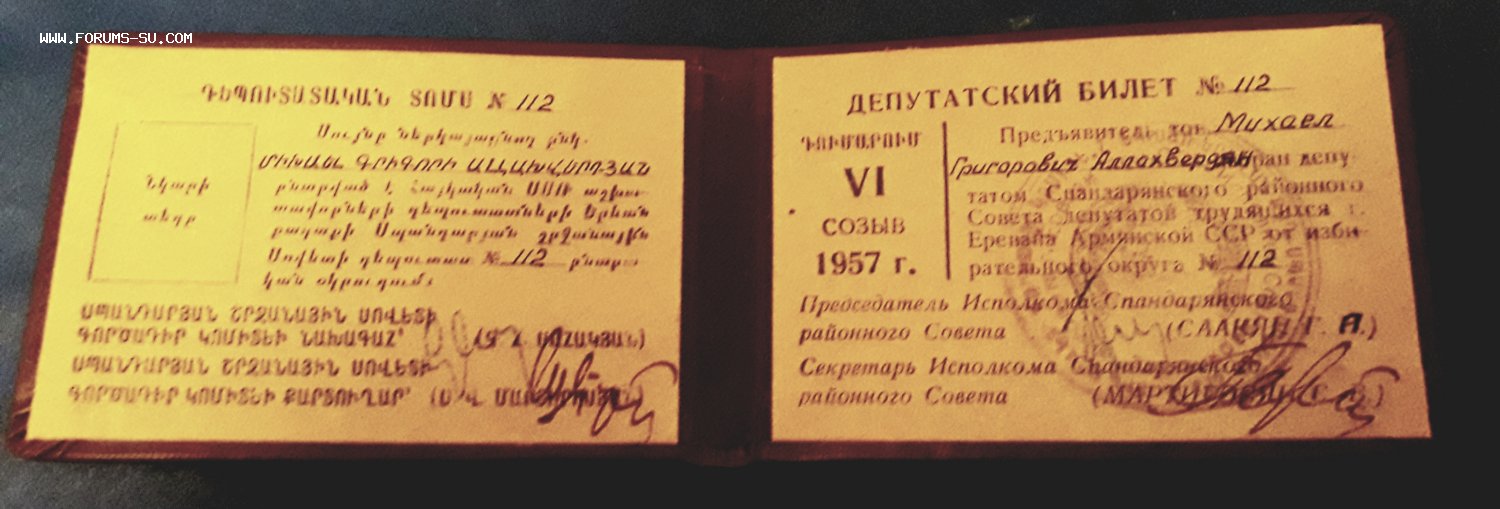 WWW.FORUMS-SU.COM
ԴԵՊՈՒՏԱՏԱԿԱՆ ՏՈՄՍ № 112
Նկարի
տեղը
Սույնը ներկայացնող ընկ.
ՄԻԽԱԵԼ ԳՐԻԳՈՐԻ ԱԼԼԱԽՎԵՐԴՅԱՆ
ընտրված է Հայկական ՍՍՌ աշխա-
տավորների դեպուտատների Երևան
քաղաքի Սպանդարյան շրջանային
Սովետի դեպուտատ № 112 ընտրա-
կան օկրուգում։
ՍՊԱՆԴԱՐՅԱՆ ՇՐՋԱՆԱՅԻՆ ՍՈՎԵՏԻ
ԳՈՐԾԱԴԻՐ ԿՈՄԻՏԵԻ ՆԱԽԱԳԱՀ՝
ՍՊԱՆԴԱՐՅԱՆ ՇՐՋԱՆԱՅԻՆ ՍՈՎԵՏԻ
ԳՈՐԾԱԴԻՐ ԿՈՄԻՏԵԻ ՔԱՐՏՈՒՂԱՐ՝
ДЕПУТАТСКИЙ БИЛЕТ № 112
ԳՈՒՄԱՐՈՒՄ
VI
СОЗЫВ
1957 г.
Предъявитель тов. Михаел
Григорович Аллахвердян избран депу-
татом Спандарянского районного
Совета депутатов трудящихся г.
Еревана Армянской ССР от изби-
рательного округа № 112
Председатель Исполкома Спандарянского
районного Совета (СААКЯН Г. А.)
Секретарь Исполкома Спандарянского
районного Совета